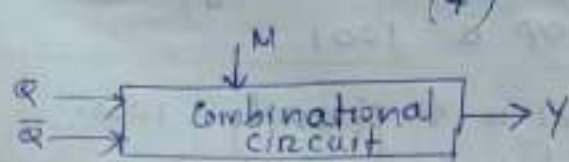 (4)
M
Q
Combinational Y
Q̅
circuit